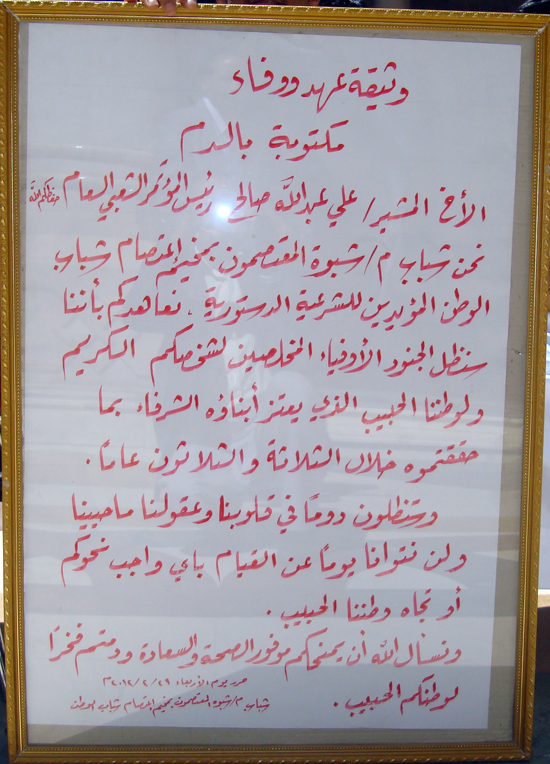 وثيقة عهد ووفاء
مكتوبة بالدم
الأخ المشير/ علي عبدالله صالح رئيس المؤتمر الشعبي العام حفظكم الله
نحن شباب م/ شبوة المعتصمون بمخيم إعتصام شباب
الوطن المؤيدين للشرعية الدستورية، نعاهدكم بأننا
سنظل الجنود الأوفياء المخلصين لشخصكم الكريم
ولوطننا الحبيب الذي يعتز أبناؤه الشرفاء بما
حققتموه خلال الثلاثة والثلاثون عاماً.
وستظلون دوماً في قلوبنا وعقولنا ماحيينا
ولن نتوانا يوماً عن القيام بأي واجب نحوكم
أو تجاه وطننا الحبيب.
ونسأل الله أن يمنحكم موفور الصحة والسعادة ودمتم فخراً
لوطنكم الحبيب.
حرر يوم الأربعاء ٢٠١٢/٢/٢٩م
شباب م/ شبوه المعتصمون بمخيم إعتصام شباب الوطن